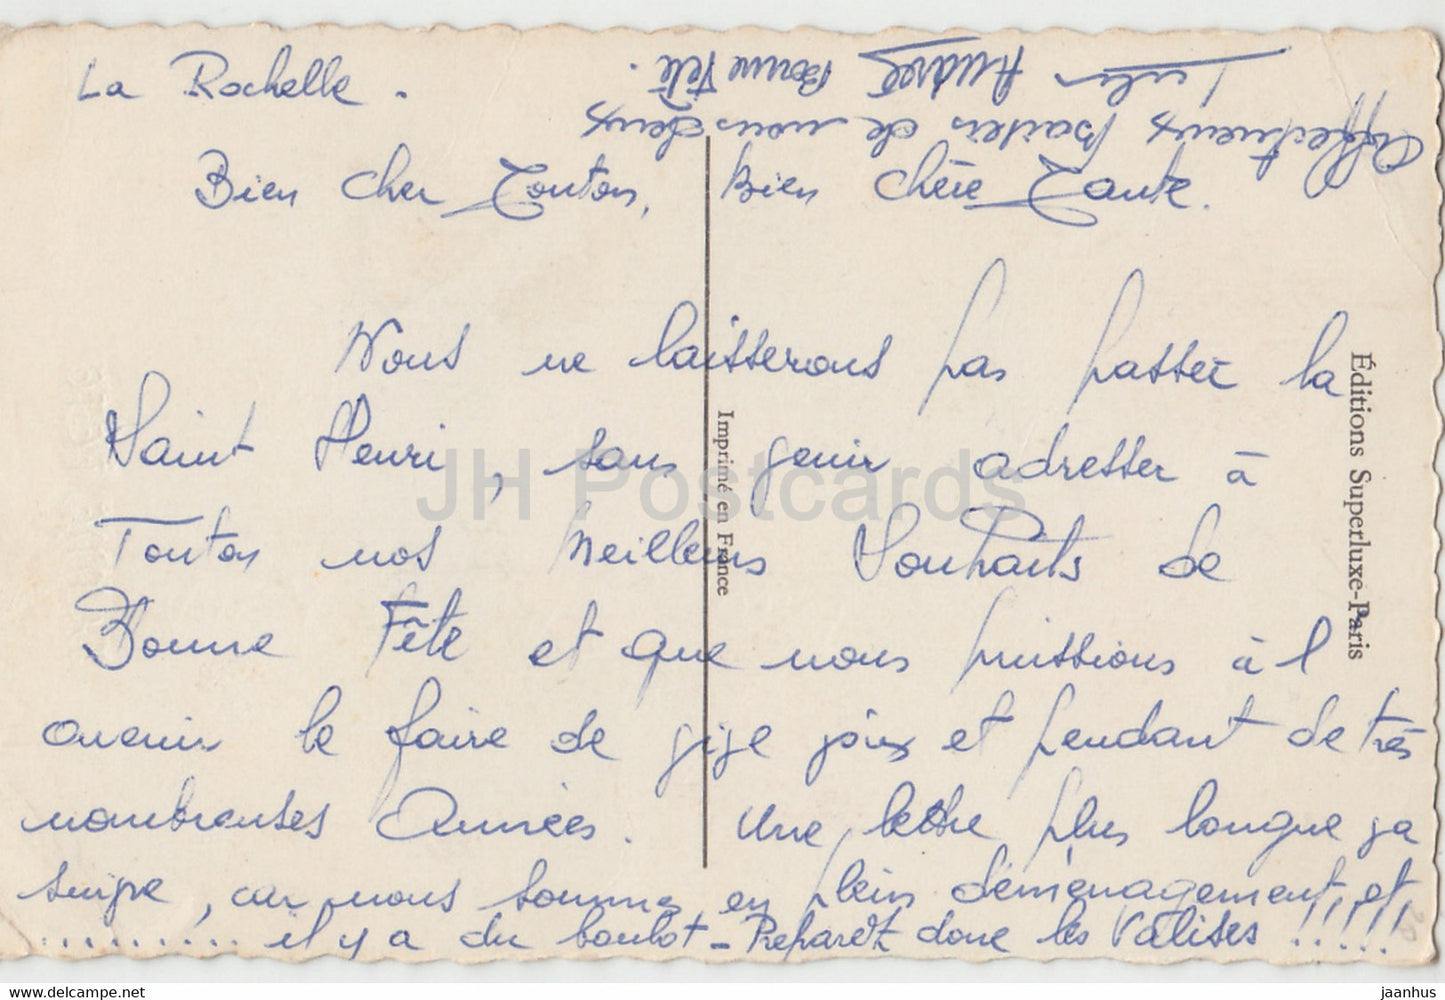 La Rochelle.
Bien cher Tonton, bien chère Tante.
Nous ne laisserons pas passer la
Saint Henri, sans venir adresser à
Tonton nos meilleurs Souhaits de
Bonne Fête et que nous puissions à l
avenir le faire de vive voix et pendant de très
nombreuses Années. Une lettre plus longue va
suivre, car nous sommes en plein déménagement, et
.......... il y a du boulot - Preparez donc les Valises !!!!!
Affectueux baisers de nous deux
André Bonne Fête.
Imprimé en France
Éditions Superluxe-Paris
JH Postcards
www.delcampe.net
jaanhus